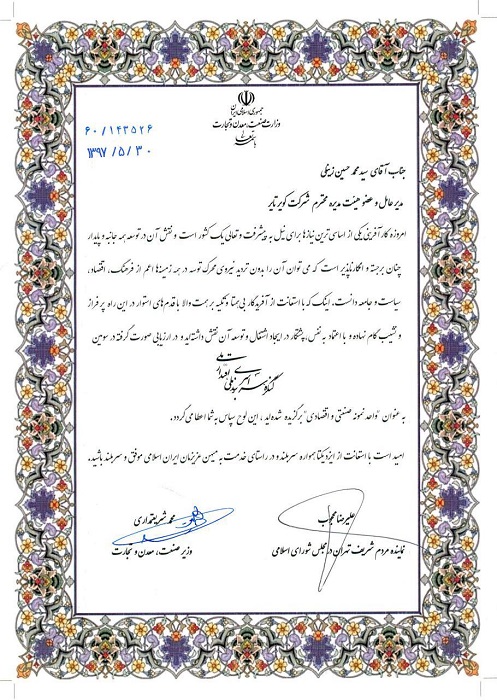 جمهوری اسلامی ایران
وزارت صنعت، معدن و تجارت
باسمه تعالی
۶۰/۱۴۳۵۲۶
۱۳۹۷/۵/۳۰
جناب آقای سید محمد حسین زینلی
مدیر عامل و عضو هیئت مدیره محترم شرکت کویر تایر
امروزه کار آفرینی یکی از اساسی ترین نیازها برای نیل به پیشرفت و تعالی یک کشور است و نقش آن در توسعه همه جانبه و پایدار
چنان برجسته و انکارناپذیر است که می توان آن را بدون تردید نیروی محرک توسه در همه زمینه‌ها اعم از فرهنگ، اقتصاد،
سیاست و جامعه دانست. اینک که با استعانت از آفریدگار بی همتا و تکیه بر همت والا با قدم‌های استوار در این راه پر فراز
و نشیب گام نهاده و با اعتماد به نفس، پشتکار در ایجاد اشتغال و توسعه آن نقش داشته‌اید و در ارزیابی صورت گرفته در سومین
به عنوان "واحد نمونه صنعتی و اقتصادی" برگزیده شده‌اید، این لوح سپاس به شما اعطا می گردد.
امید است با استعانت از ایزد یکتا همواره سربلند و در راستای خدمت به میهن عزیزمان ایران اسلامی موفق و سربلند باشید.
علیرضا محجوب
نماینده مردم شریف تهران در مجلس شورای اسلامی
محمد شریعتمداری
وزیر صنعت، معدن و تجارت